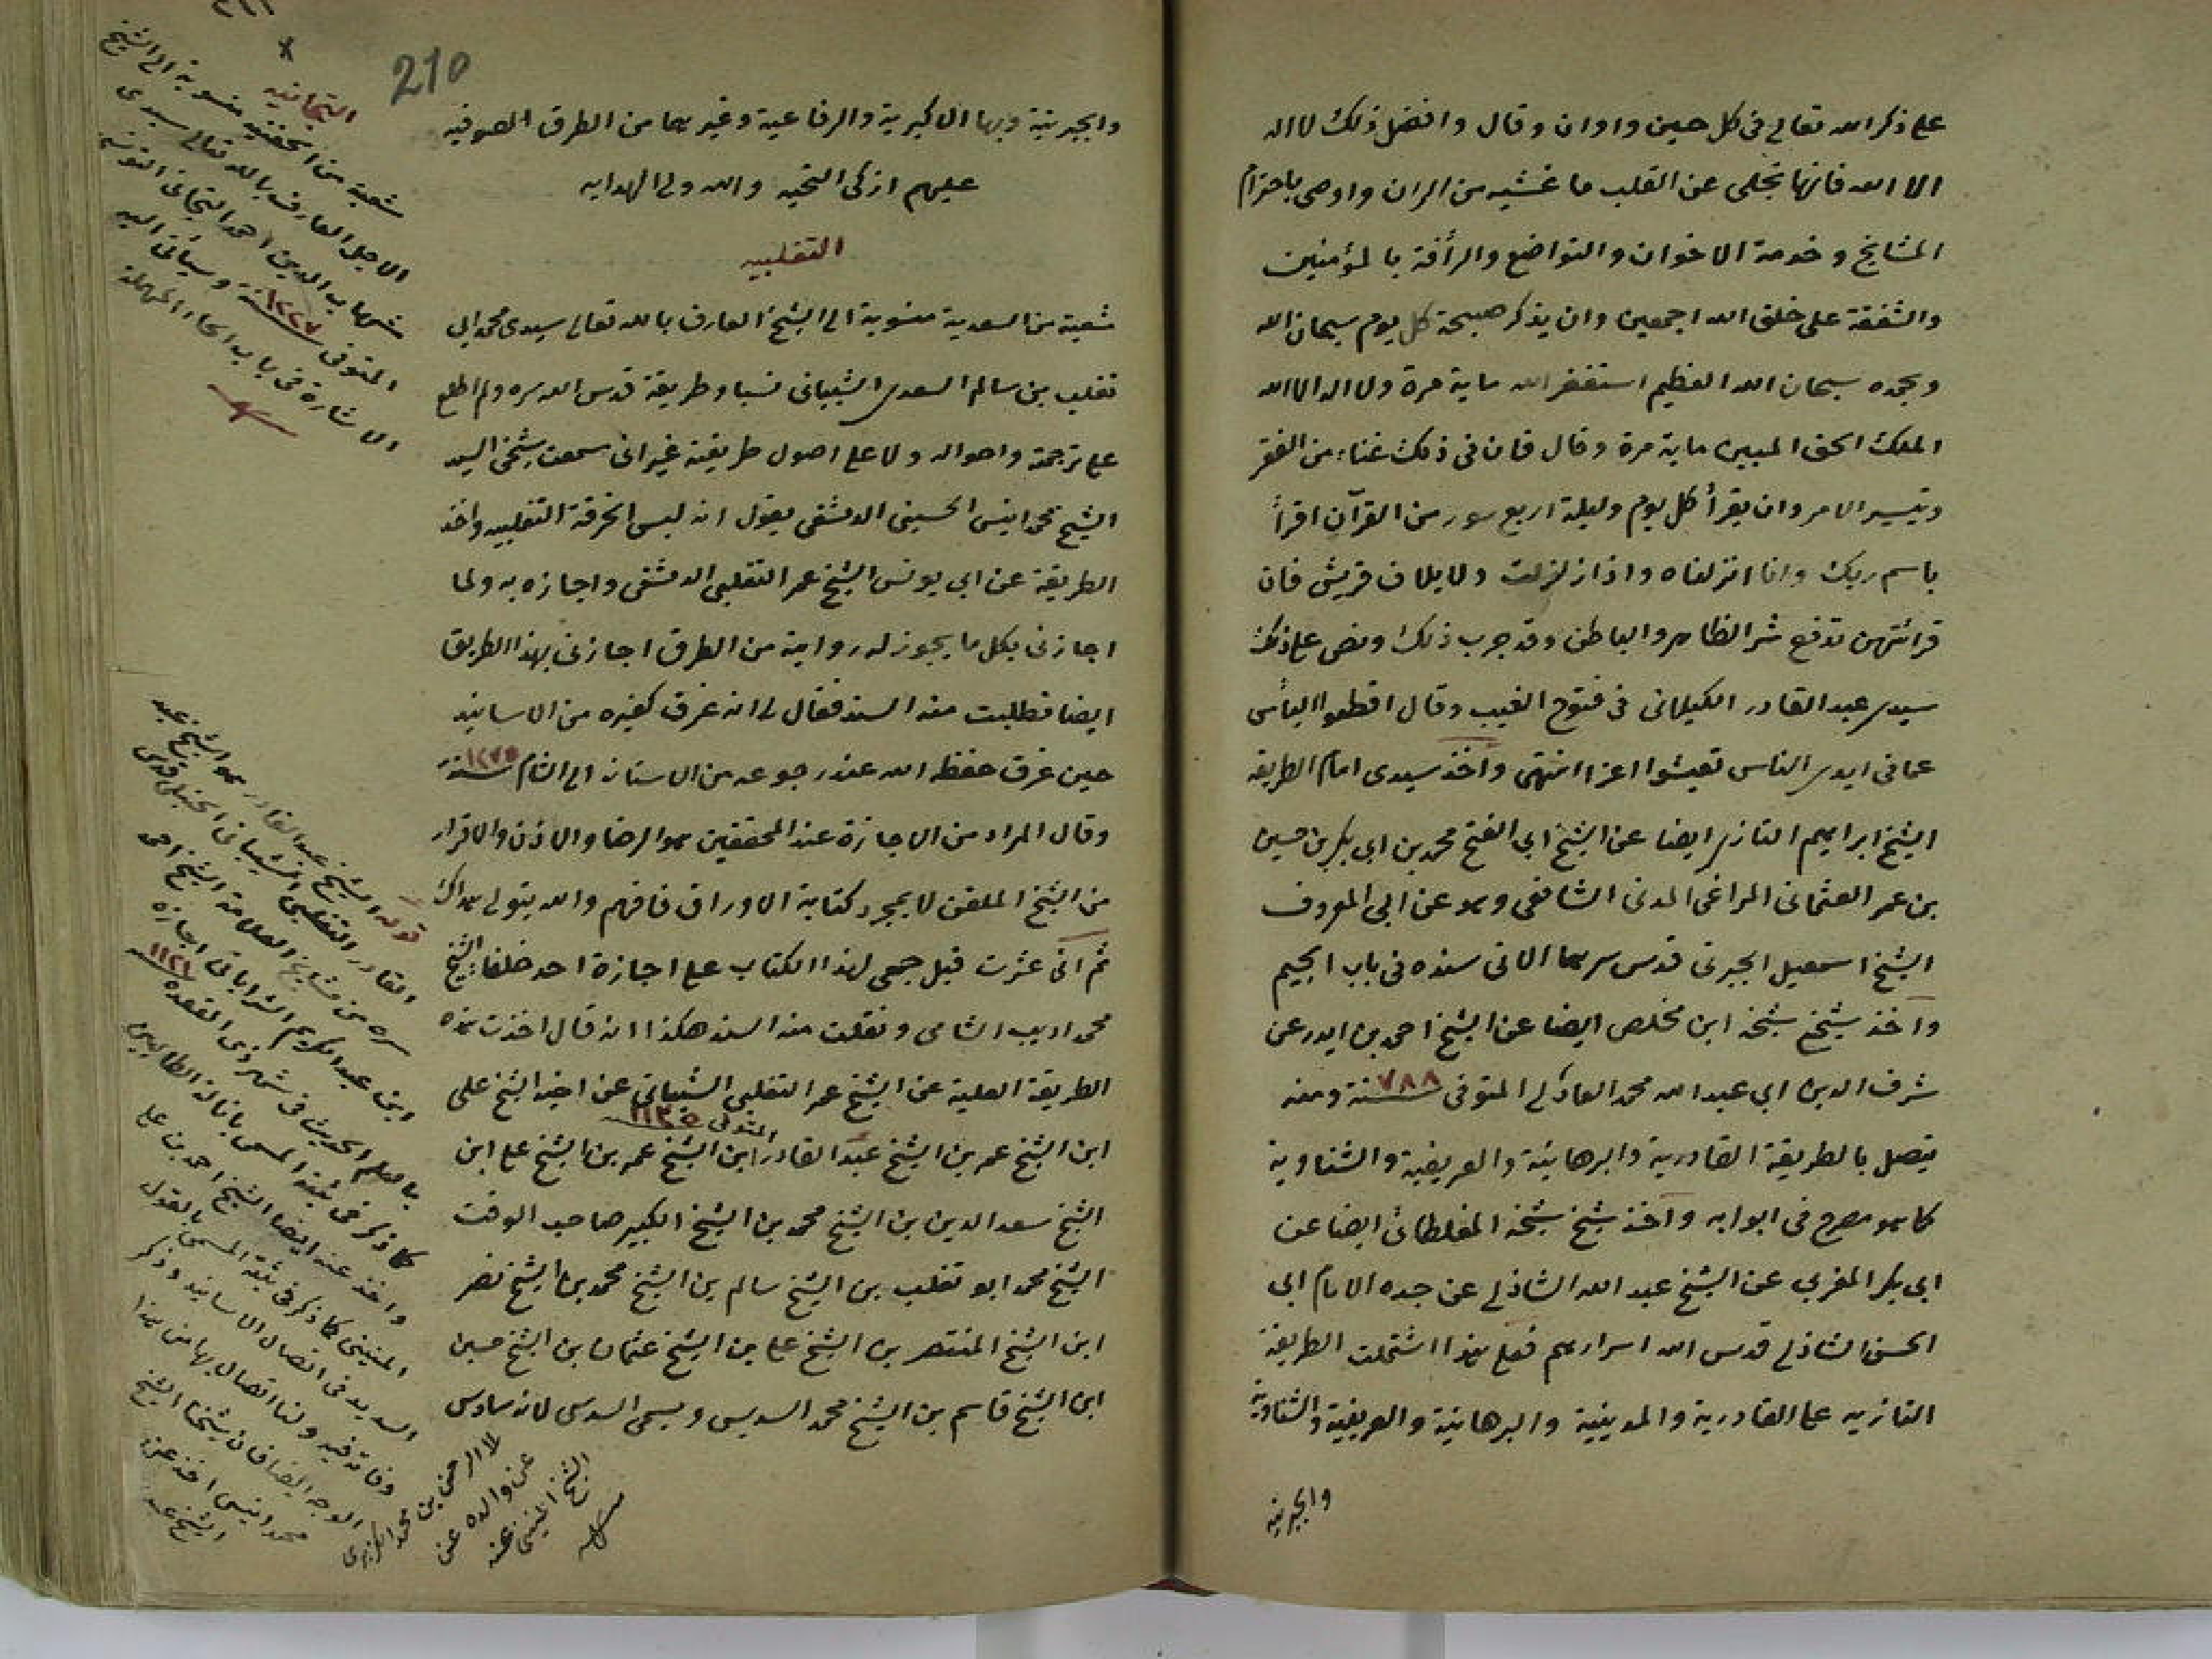 على ذكر الله تعالى فى كل حين واوان وقال وافضل ذلك لا اله
الا الله فانها تجلى عن القلب ما غشيه من الران واوصى باحترام
المشايخ وخدمة الاخوان والتواضع والرأفة بالمؤمنين
والشفقة على خلق الله اجمعين وان يذكر صبيحة كل يوم سبحان الله
وبحمده سبحان الله العظيم استغفر الله ماية مرة ولا اله الا الله
الملك الحق المبين ماية مرة وقال فان فى ذلك غناء من الفقر
وتيسير الامر وان يقرأ كل يوم وليلة اربع سور من القرآن اقرأ
باسم ربك وانا انزلناه واذا زلزلت ولايلاف قريش فان
قرائتهن تدفع شر الظاهر والباطن وقد جرب ذلك ونص على ذلك
سيدى عبد القادر الكيلانى فى فتوح الغيب وقال اقطعوا اليأس
عما فى ايدى الناس تعيشوا اعزا انتهى واخذ سيدى امام الطريقه
الشيخ ابراهيم التازى ايضا عن الشيخ ابى الفتح محمد بن ابى بكر بن حسين
بن عمر العثمانى المراغى المدنى الشافعى وهو عن ابى المعروف
الشيخ اسمعيل الجبرتى قدس سرهما الاتى سنده فى باب الجيم
واخذ شيخ شيخه ابن مخلص ايضا عن الشيخ احمد بن ايدر عن
شرف الدين ابى عبد الله محمد العادلى المتوفى سنة ٧٨٨ ومنه
يتصل بالطريقة القادرية والبرهانية والعريفية والشناوية
كما هو مصرح فى ابوابه واخذ شيخ شيخه المغلطائى ايضا عن
ابى بكر المغربى عن الشيخ عبد الله الشاذلى عن جده الامام ابى
الحسن الشاذلى قدس الله اسرارهم فعلى هذا اشتملت الطريقة
التازيه على القادرية والمدينية والبرهانية والعريفية والشناوية
والجبرتيه
210
والجبرتية وبها الاكبرية والرفاعية وغيرهما من الطرق الصوفيه
عليهم ازكى التحيه والله ولى الهدايه
التغلبيه
شعبة من السعدية منسوبة الى الشيخ العارف بالله تعالى سيدى محمد ابى
تغلب بن سالم السعدى الشيبانى نسبا وطريقة قدس الله سره ولم اطلع
على ترجمته واحواله ولا على اصول طريقته غير انى سمعت شيخى السيد
الشيخ محمد انيس الحسينى الدمشقى يقول انه لبس الخرقة التغلبيه واخذ
الطريقة عن ابى يونس الشيخ عمر التغلبى الدمشقى واجازه به ولما
اجازنى بكل ما يجوز له روايته من الطرق اجازنى بهذا الطريق
ايضا فطلبت منه السند فقال لى انه غرق كغيره من الاسانيد
حين غرق حفظه الله عند رجوعه من الاستانه الى الشام سنة ١٢٧٥
وقال المراد من الاجازة عند المحققين هو الرضا والاذن والاقرار
من الشيخ الملقن لا بمجرد كتابة الاوراق فافهم والله يتولى هداك
ثم انى عثرت قبل جمعى لهذا الكتاب على اجازة احد خلفاء الشيخ
محمد اديب الشامى ونقلت منه السند هكذا انه قال اخذت هذه
الطريقة العلية عن الشيخ عمر التغلبى الشيبانى عن اخيه الشيخ على
ابن الشيخ عمر بن الشيخ عبد القادر المتوفى ١١٣٥ ابن الشيخ عمر بن الشيخ على ابن
الشيخ سعد الدين بن الشيخ محمد بن الشيخ الكبير صاحب الوقت
الشيخ محمد ابو تغلب بن الشيخ سالم بن الشيخ محمد بن الشيخ نصر
ابن الشيخ المنتصر بن الشيخ على بن الشيخ عثمان بن الشيخ حسين
ابن الشيخ قاسم بن الشيخ محمد السديس ويسمى السدسى لانه سادس
التجانيه
شعبة من الخفنيه منسوبة الى الشيخ
الاجل العارف بالله تعالى سيدى
شهاب الدين احمد التجانى التونسى
المتوفى سنة ١٢٢٧ وسيأتى اليه
الاشارة فى باب الحاء المهملة
قوله الشيخ عبد القادر هو الشيخ عبد
القادر التغلبى الشيبانى الحنبلى قدس
سره من مشايخ العلامة الشيخ احمد
ابن عبد الكريم الشراباتى اجازه
بالعلم الحديث فى شهر ذى القعده
كما ذكر فى ثبته المسمى بانالة الطالبين
واخذ عنه ايضا الشيخ احمد بن على
المنينى كما ذكر فى ثبته المسمى بالقول
السديد فى اتصال الاسانيد وذكر
وفاته فيه ولنا اتصال بها من هذا
الوجه ايضا فان شيخنا الشيخ
محمد انيس اخذ عن
الشيخ عبد
الرحمن بن محمد الكزبرى
عن والده عن
الشيخ المنينى عنه